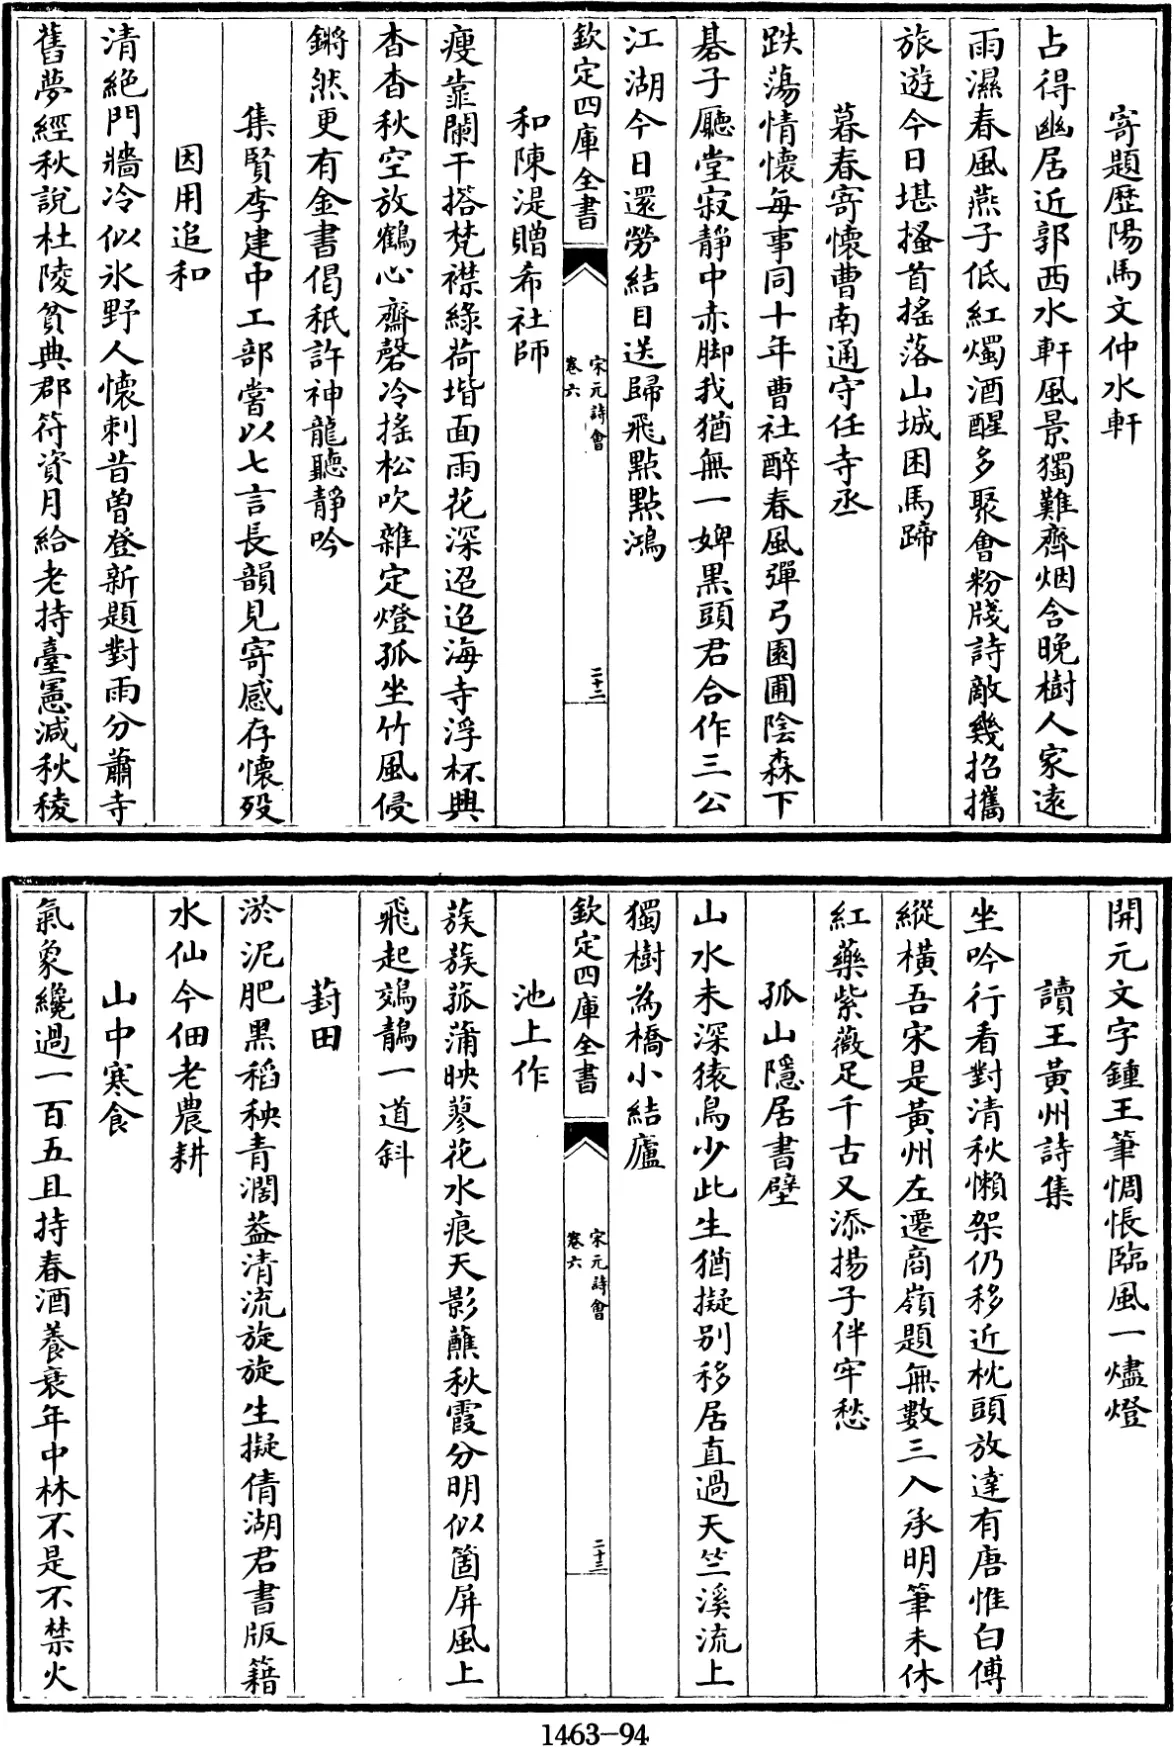 寄題歷陽馬文仲水軒
占得幽居近郭西水軒風景獨難齊烟含晚樹人家遠
雨濕春風燕子低紅燭酒醒多聚會粉牋詩敵幾招攜
旅遊今日堪搔首搖落山城困馬蹄
暮春寄懷曹南通守任寺丞
跌蕩情懷每事同十年曹社醉春風彈弓園圃陰森下
碁子廳堂寂靜中赤脚我猶無一婢黑頭君合作三公
江湖今日還勞結目送歸飛點點鴻
欽定四庫全書
宋元詩會
卷六
二十二
和陳湜贈希社師
瘦靠闌干搭梵襟綠荷堦面雨花深迢迢海寺浮杯興
杳杳秋空放鶴心齋磬冷搖松吹雜定燈孤坐竹風侵
鏘然更有金書偈秖許神龍聽靜吟
集賢李建中工部嘗以七言長韻見寄感存懷歿
因用追和
清絕門牆冷似氷野人懷刺昔曾登新題對雨分蕭寺
舊夢經秋說杜陵貧典郡符資月給老持臺憲減秋稜
開元文字鍾王筆惆悵臨風一燼燈
讀王黃州詩集
坐吟行看對清秋懶架仍移近枕頭放達有唐惟白傅
縱橫吾宋是黃州左遷商嶺題無數三入承明筆未休
紅藥紫薇足千古又添揚子伴牢愁
孤山隱居書壁
山水未深猿鳥少此生猶擬別移居直過天竺溪流上
獨樹為橋小結廬
欽定四庫全書
宋元詩會
卷六
二十三
池上作
蔟蔟菰蒲映蓼花水痕天影蘸秋霞分明似箇屏風上
飛起鵁鶄一道斜
葑田
淤泥肥黑稻秧青濶葢清流旋旋生擬倩湖君書版籍
水仙今佃老農耕
山中寒食
氣象纔過一百五且持春酒養衰年中林不是不禁火
1463-94